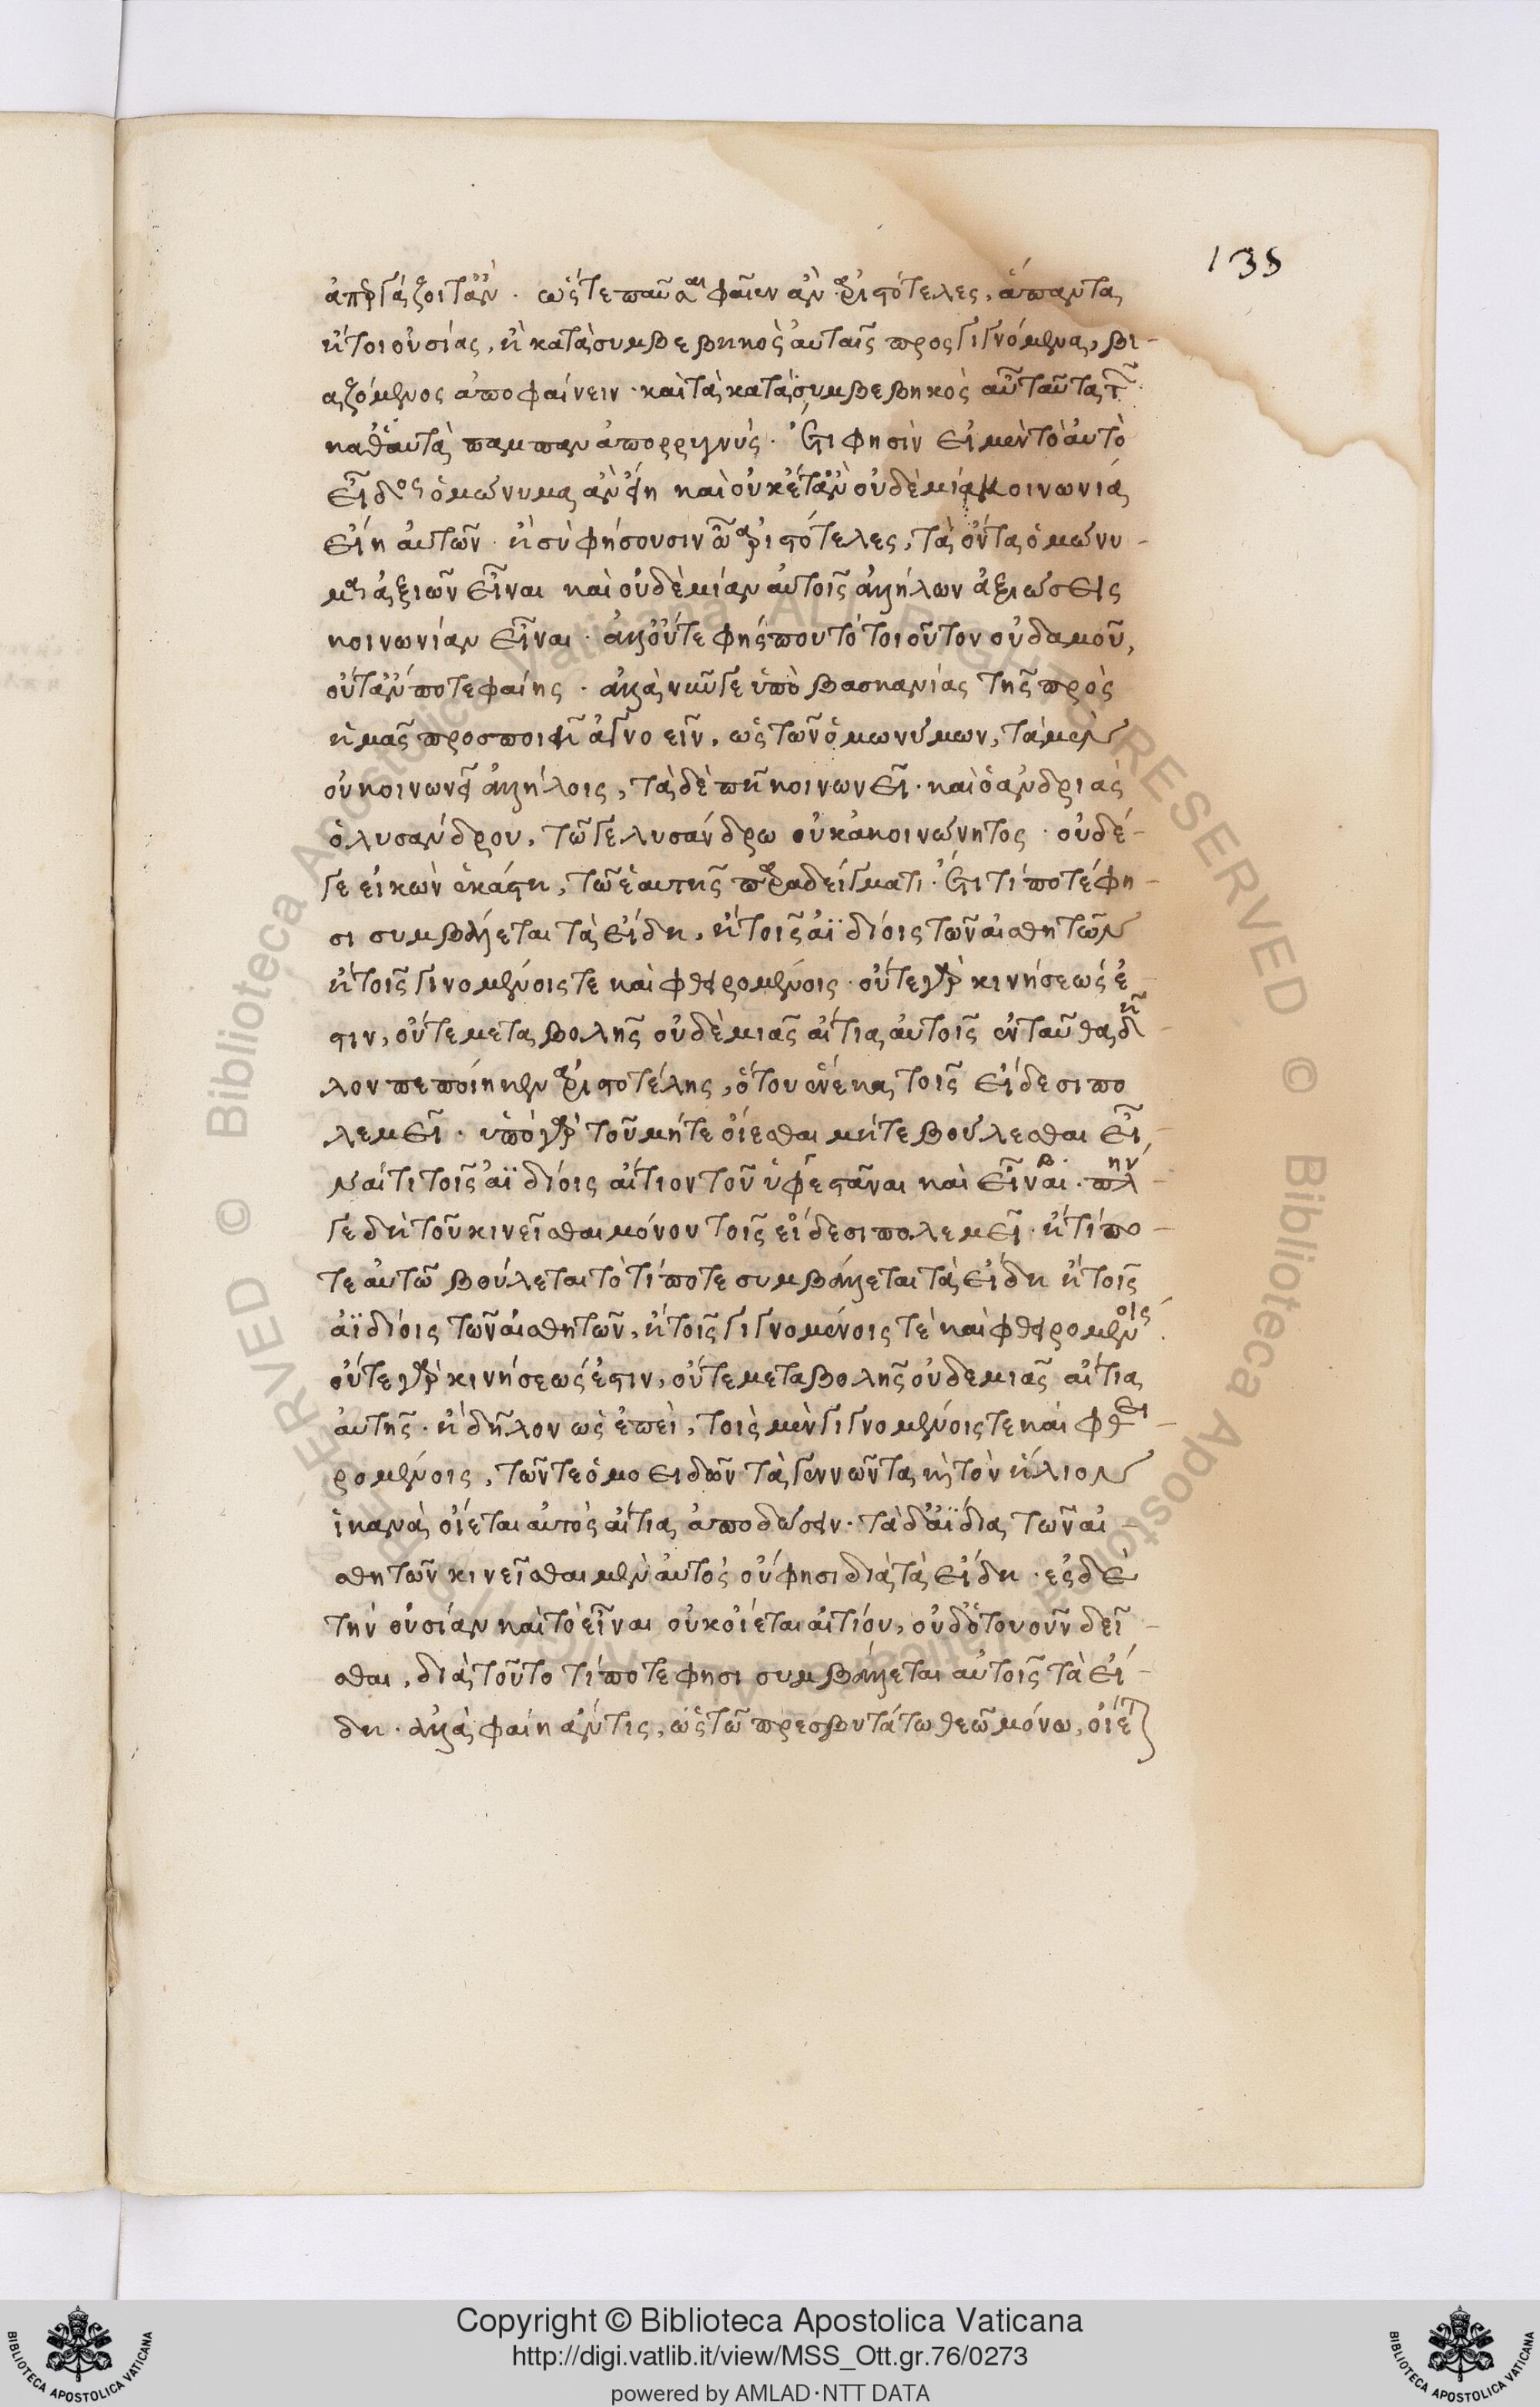 135
ἀπεργάζοιτ' ἄν. ὥςτε παῦσαι φαῖεν ἂν ἀριστότελες, ἅπαντα
ἤτοι οὐσίας, ἢ κατὰ συμβεβηκὸς αὐταῖς προςγιγνόμενα, βι-
αζόμενος ἀποφαίνειν. καὶ τὰ κατὰ συμβεβηκὸς αὖ ταῦτα τῶν
καθ' αὑτὰ παμπαν ἀπορρηγνύς. Ἔτι φησὶν εἰ μὲν τὸ αὐτὸ
εἶδος ὁμώνυμα ἂν εἴη καὶ οὐκέτ' ἂν οὐδὲμία κοινωνία
εἴη αὐτῶν. ἢ σὺ φήσουσιν ὦ ἀριστότελες, τὰ ὄντα ὁμώνυ-
μα ἀξιῶν εἶναι καὶ οὐδὲμίαν αὐτοῖς ἀλλήλων ἀξιώσεις
κοινωνίαν εἶναι. ἀλλ' οὔτε φής που τό τοιοῦτον οὐδαμοῦ,
οὔτ' ἄν ποτε φαίης. ἀλλὰ νῦν γε ὑπὸ βασκανίας τῆς πρὸς
ἡμᾶς προσποιῇ ἀγνοεῖν, ὡς τῶν ὁμωνύμων, τὰ μὲν
οὐ κοινωνεῖ ἀλλήλοις, τὰ δὲ πῆ κοινωνεῖ. καὶ ὁ ἀνδριὰς
ὁ λυσάνδρου, τῶ γε λυσάνδρω οὐκ ἀκοινώνητος. οὐδέ-
γε εἰκὼν ἑκάστη, τῶ ἑαυτῆς παραδείγματι. Ἔτι τί ποτέ φη-
σι συμβάλλεται τὰ εἴδη, ἢ τοῖς ἀϊδίοις τῶν αἰσθητῶν
ἢ τοῖς γινομένοις τε καὶ φθειρομένοις. οὔτε γὰρ κινήσεώς ἐ-
στιν, οὔτε μεταβολῆς οὐδὲμιᾶς αἴτια αὐτοῖς ἐνταῦθα δῆ-
λον πεποίηκεν ἀριστοτέλης, ὅτου ἕνεκα τοῖς εἴδεσι πο
λεμεῖ. ὑπὸ γὰρ τοῦ μήτε οἴεσθαι μήτε βούλεσθαι εἶ-
ναί τι τοῖς ἀϊδίοις αἴτιον τοῦ ὑφεστάναι καὶ εἶναι. πλήν-
γε δὴ τοῦ κινεῖσθαι μόνον τοῖς εἴδεσι πολεμεῖ. ἢ τί πο-
τε αὐτῶ βούλεται τὸ τί ποτε συμβάλλεται τὰ εἴδη ἢ τοῖς
ἀϊδίοις τῶν αἰσθητῶν, ἢ τοῖς γιγνομένοις τὲ καὶ φθειρομένοις.
οὔτε γὰρ κινήσεώς ἐστιν, οὔτε μεταβολῆς οὐδεμιᾶς αἴτια
αὐτῆς. ἢ δῆλον ὡς ἐπεὶ, τοὶς μὲν γιγνομένοις τε καὶ φθει-
ρομένοις, τῶν τε ὁμοειδῶν τὰ γεννῶντα καὶ τὸν ἥλιον
ἱκανὰ οἴεται αὐτὸς αἴτια ἀποδώσειν. τὰ δ' ἀΐδια τῶν αἰ-
σθητῶν κινεῖσθαι μὲν αὐτὸς οὔ φησι διὰ τὰ εἴδη. ἐς δὲ
τὴν οὐσίαν καὶ τὸ εἶναι οὐκ οἴεται αἰτίου, οὐδ' ὅτου οὖν δεῖ-
σθαι, διὰ τοῦτο τί ποτε φησι συμβάλλεται αὐτοῖς τὰ εἴ-
δη. ἀλλὰ φαίη ἄν τις, ὡς τῶ πρεσβυτάτω θεῶ μόνω, οἴεται
Copyright © Biblioteca Apostolica Vaticana
http://digi.vatlib.it/view/MSS_Ott.gr.76/0273
powered by AMLAD·NTT DATA